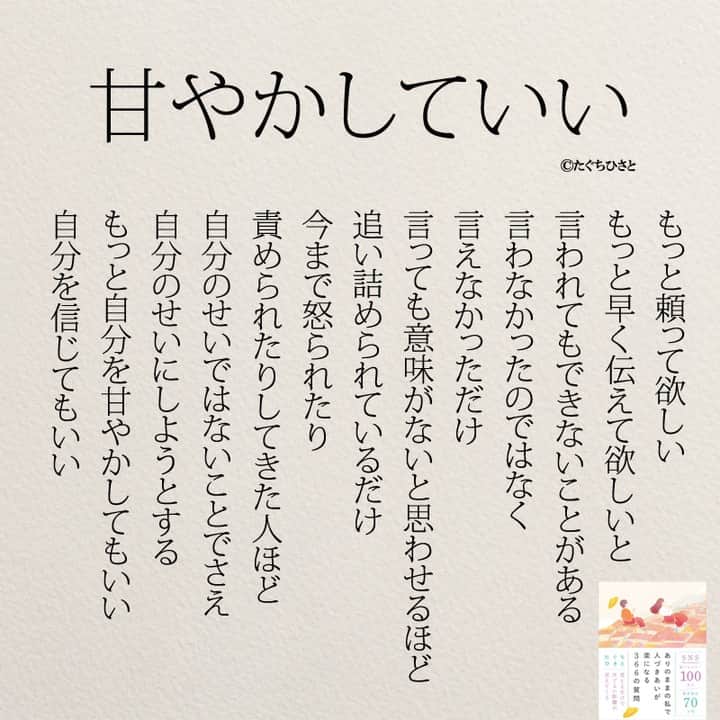 甘やかしていい
©たぐちひさと
もっと頼って欲しい
もっと早く伝えて欲しいと
言われてもできないことがある
言わなかったのではなく
言えなかっただけ
言っても意味がないと思わせるほど
追い詰められているだけ
今まで怒られたり
責められたりしてきた人ほど
自分のせいではないことでさえ
自分のせいにしようとする
もっと自分を甘やかしてもいい
自分を信じてもいい
ありのままの私で
人づきあいが
楽になる
366の質問
SNS
100
70